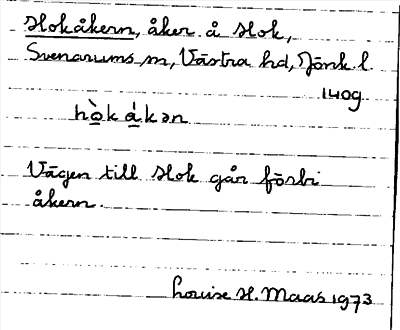 Hokåkern, åker å Hok,
Svenarums sn, Västra hd, Jönk. l.
1409
hò̱k á̱kən
Vägen till Hok går förbi
åkern.
Louise H. Maas 1973